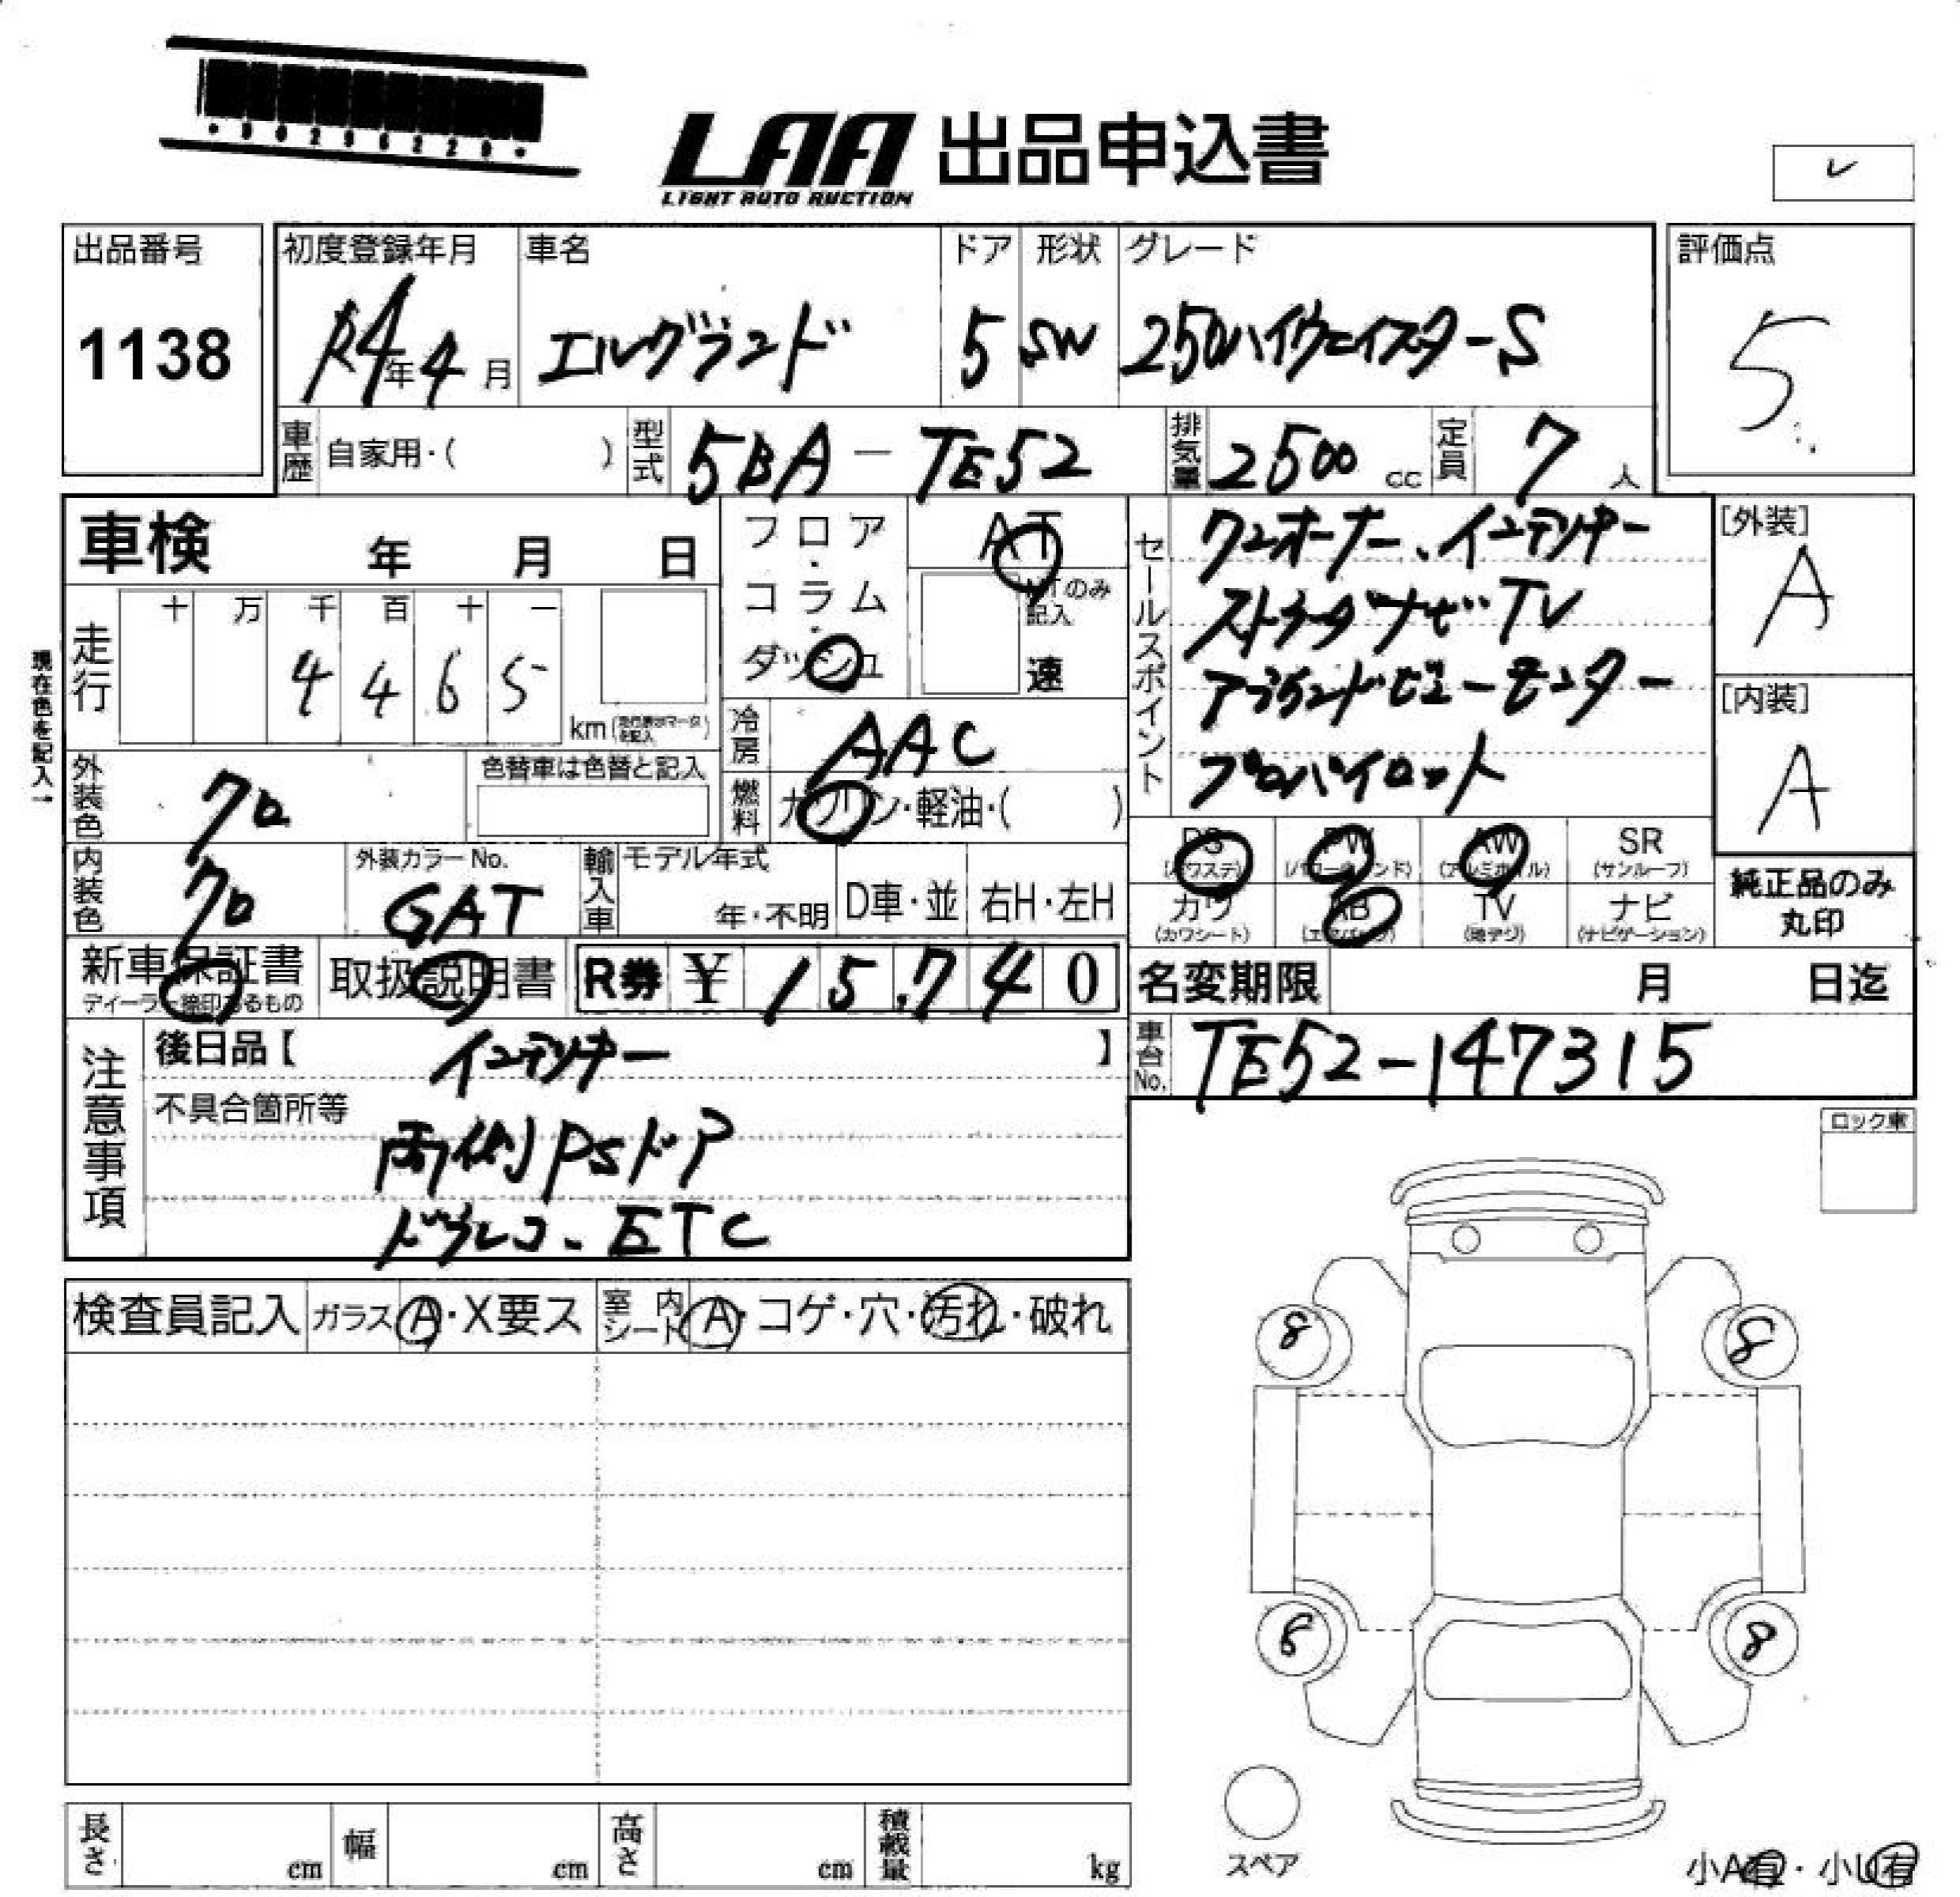 LAA 出品申込書
LIGHT AUTO AUCTION
レ
出品番号
1138
初度登録年月
R4年4月
車名
エルグランド
ドア
5
形状
SW
グレード
250ハイウェイスターS
評価点
5
車歴 自家用・( )
型式 5BA-TE52
排気量 2500 cc
定員 7 人
車検 年 月 日
フロア・コラム・ダッシュ
AT
MTのみ記入
速
セールスポイント
ワンオーナー、インテリキー
ストラーダナビTV
アラウンドビューモニター
プロパイロット
[外装]
A
[内装]
A
現在色を記入→
走行
十 万 千 百 十 一
4 4 6 5
km
冷房 AAC
燃料 ガソリン・軽油・( )
外装色 クロ
色替車は色替と記入
内装色 クロ
外装カラーNo.
GAT
輸入車
モデル年式
年・不明
D車・並
右H・左H
PS (パワステ)
PW (パワーウィンド)
AW (アルミホイル)
SR (サンルーフ)
カワ (カワシート)
AB (エアバッグ)
TV (地デジ)
ナビ (ナビゲーション)
純正品のみ
丸印
新車保証書
ディーラー捺印あるもの
取扱説明書
R券 ¥ 15.740
名変期限 月 日迄
車台No. TE52-147315
注意事項
後日品【 インテリキー 】
不具合箇所等
両側PSドア
ドラレコ、ETC
ロック車
検査員記入
ガラス A・X要ス
室内シート A・コゲ・穴・汚れ・破れ
8
8
6
8
スペア
長さ cm
幅 cm
高さ cm
積載量 kg
小A有・小U有